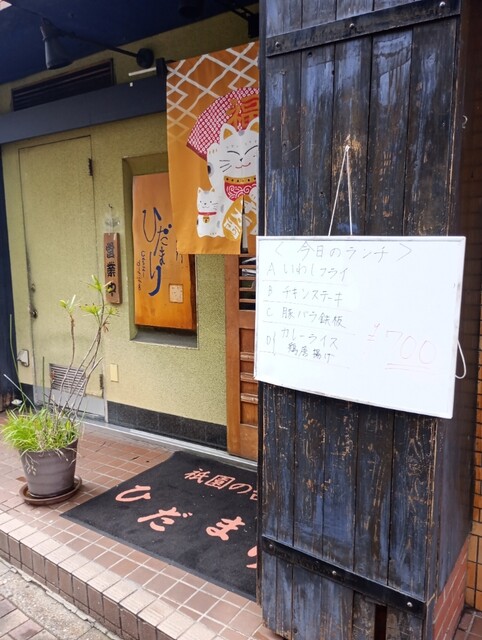 福
ひだまり
営業中
<今日のランチ>
A いわしフライ
B チキンステーキ
C 豚バラ鉄板
D カレーライス
鶏唐揚げ
700
祇園の
ひだまり